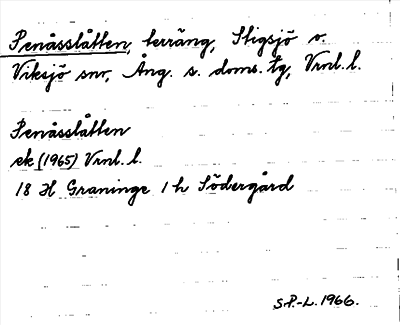 Penåsslåtten, terräng, Stigsjö o.
Viksjö snr, Ång. s. doms. tg, Vrnl. l.
Penåsslåtten
ek (1965) Vrnl. l.
18 H Graninge 1 h Södergård
S.P.-L. 1966.